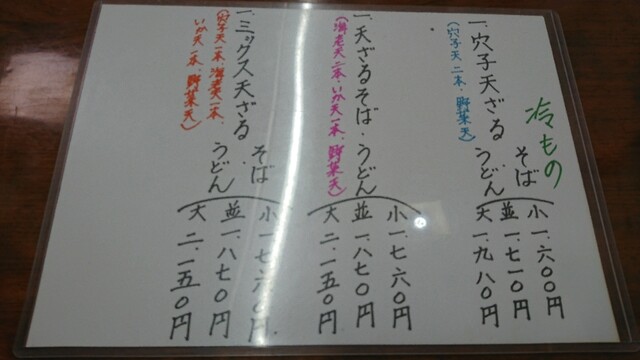 冷もの
一、穴子天ざる そば うどん
(穴子天二本・野菜天)
小 一、六〇〇円
並 一、七一〇円
大 一、九八〇円
一、天ざるそば・うどん
(海老天二本・いか天一本、野菜天)
小 一、七六〇円
並 一、八七〇円
大 二、一五〇円
一、ミックス天ざる そば うどん
(穴子天一本、海老天一本、
いか天一本、野菜天)
小 一、七六〇円
並 一、八七〇円
大 二、一五〇円